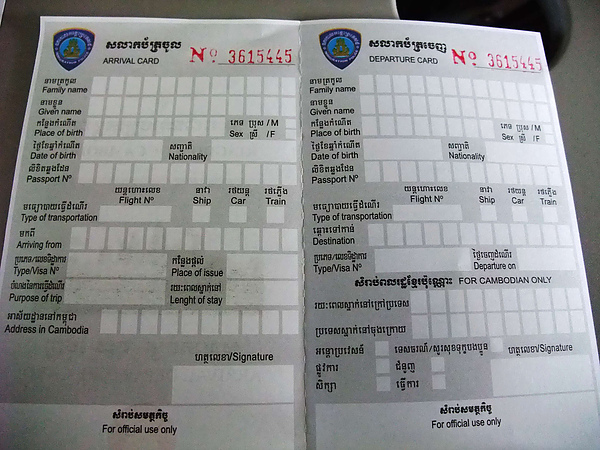 សលាកប័ត្រចូល
ARRIVAL CARD
Nº 3615445
នាមត្រកូល
Family name
នាមខ្លួន
Given name
កន្លែងកំណើត
Place of birth
ភេទ ប្រុស / M
Sex ស្រី / F
ថ្ងៃខែឆ្នាំកំណើត
Date of birth
សញ្ជាតិ
Nationality
លិខិតឆ្លងដែន
Passport Nº
យន្តហោះលេខ នាវា រថយន្ត រថភ្លើង
Flight Nº Ship Car Train
មធ្យោបាយធ្វើដំណើរ
Type of transportation
មកពី
Arriving from
ប្រភេទ/លេខទិដ្ឋាការ
Type/Visa Nº
កន្លែងផ្តល់
Place of issue
បំណងនៃការធ្វើដំណើរ
Purpose of trip
រយៈពេលស្នាក់នៅ
Lenght of stay
អាស័យដ្ឋាននៅកម្ពុជា
Address in Cambodia
ហត្ថលេខា/Signature
សំរាប់សមត្ថកិច្ច
For official use only
សលាកប័ត្រចេញ
DEPARTURE CARD
Nº 3615445
នាមត្រកូល
Family name
នាមខ្លួន
Given name
កន្លែងកំណើត
Place of birth
ភេទ ប្រុស / M
Sex ស្រី / F
ថ្ងៃខែឆ្នាំកំណើត
Date of birth
សញ្ជាតិ
Nationality
លិខិតឆ្លងដែន
Passport Nº
យន្តហោះលេខ នាវា រថយន្ត រថភ្លើង
Flight Nº Ship Car Train
មធ្យោបាយធ្វើដំណើរ
Type of transportation
ឆ្ពោះទៅកាន់
Destination
ប្រភេទ/លេខទិដ្ឋាការ
Type/Visa Nº
ថ្ងៃចេញដំណើរ
Departure on
សំរាប់ពលរដ្ឋខ្មែរប៉ុណ្ណោះ FOR CAMBODIAN ONLY
រយៈពេលស្នាក់នៅក្រៅប្រទេស
ប្រទេសស្នាក់នៅចុងក្រោយ
អន្តោប្រវេសន៍ ទេសចរណ៍/សួរសុខទុក្ខបងប្អូន
ហត្ថលេខា/Signature
ផ្លូវការ ជំនួញ
សិក្សា ធ្វើការ
សំរាប់សមត្ថកិច្ច
For official use only